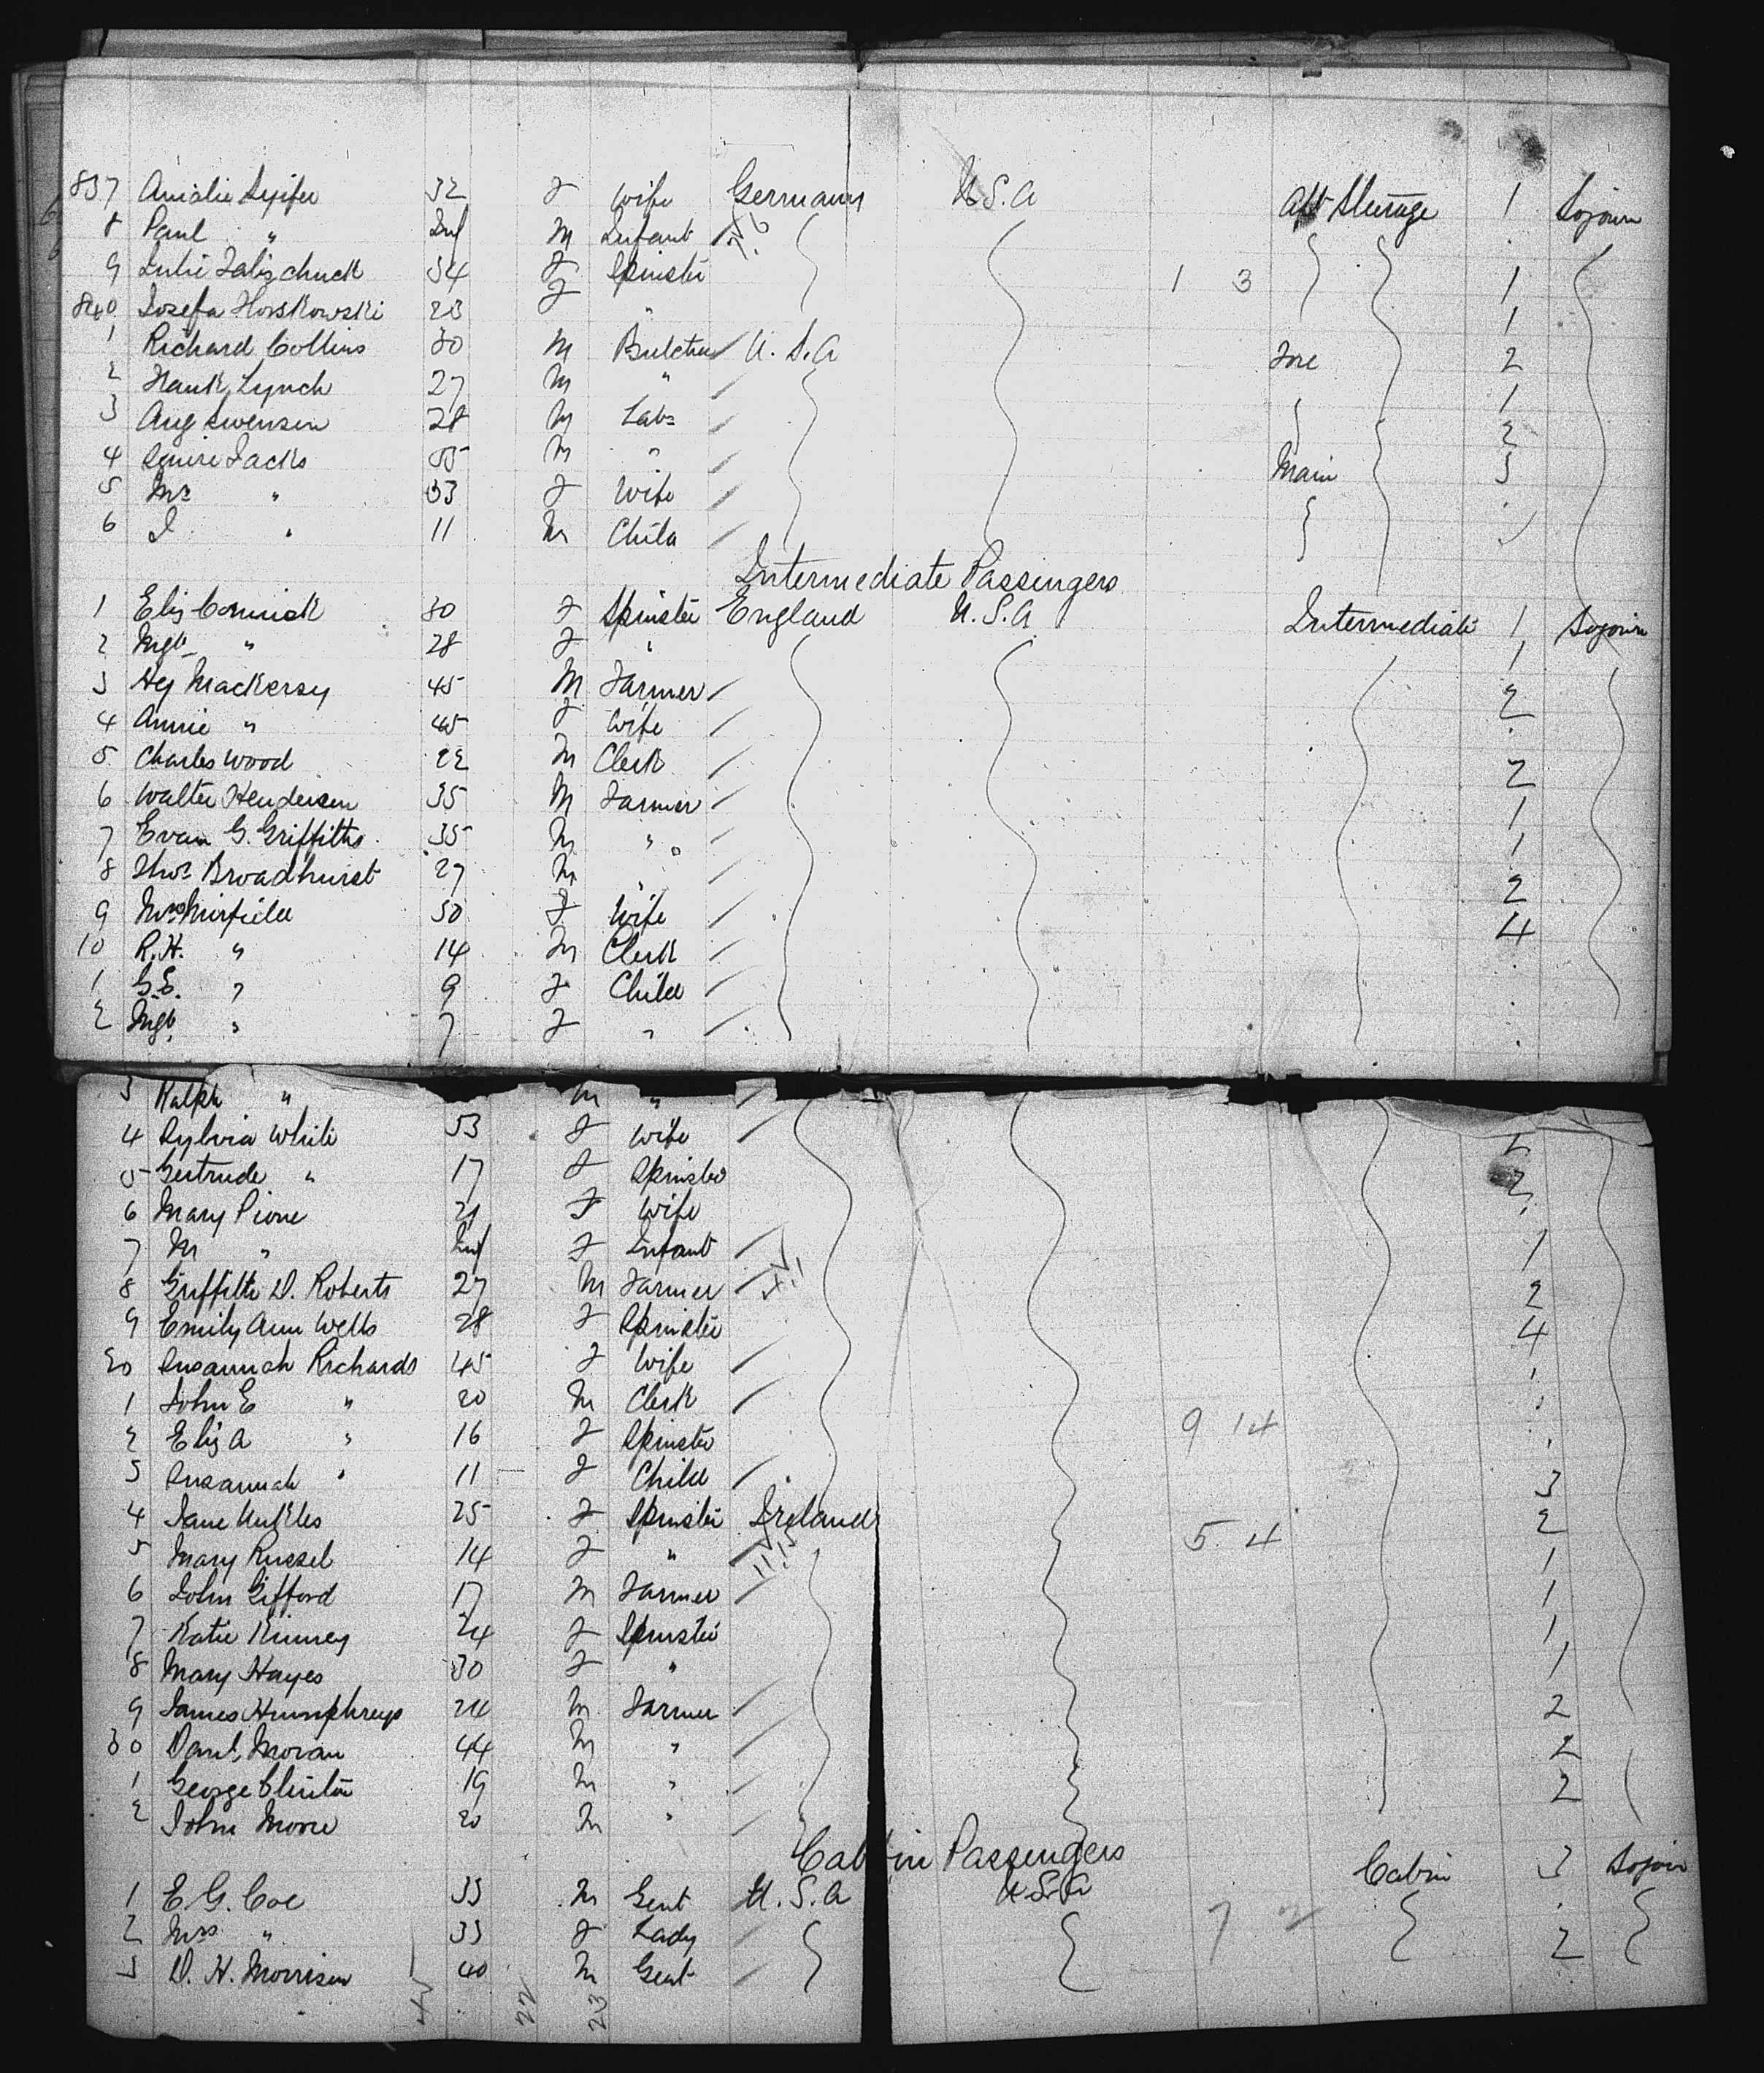 837 Amalie Syifer 32 F Wife Germany U.S.A Aft Steerage 1 Sojourn
8 Paul " Inf M Infant 7.6
9 Julie 34 F Spinster 1 3 1
840 Josefa Horskowski 23 F " 1
1 Richard Collins 30 M Butcher U.S.A Fore 2
2 Frank Lynch 27 M " 1
3 Aug Swensen 28 M Labr 2
4 Squire Jacks 55 M " Main 3
5 Mrs " 33 F Wife
6 J " 11 M Child
Intermediate Passengers
1 Eliz Cornick 30 F Spinster England U.S.A Intermediate 1 Sojourn
2 Mgt " 28 F " 1
3 Hy Mackersy 45 M Farmer 2
4 Annie " 45 F Wife
5 Charles Wood 22 M Clerk 2
6 Walter Henderson 35 M Farmer 1
7 Evan G. Griffiths 35 M " 1
8 Thos Broadhurst 27 M " 2
9 Mrs Mirfield 50 F Wife 4
10 R.H. " 14 M Clerk
1 G.E. " 9 F Child
2 Mgt " 7 F "
3 Ralph " M "
4 Sylvia White 53 F Wife 2
5 Gertrude " 17 F Spinster 2
6 Mary Pione 21 F Wife
7 M " Inf F Infant 1
8 Griffith D. Roberts 27 M Farmer 2
9 Emily Ann Wells 28 F Spinster 4
20 Susannah Richards 45 F Wife
1 John E " 20 M Clerk
2 Eliz A " 16 F Spinster 9 14
3 Susannah " 11 F Child 3
4 Jane Unkles 25 F Spinster Ireland 2
5 Mary Russel 14 F " 11.15 5 4 1
6 John Gifford 17 M Farmer 1
7 Katie Kinney 24 F Spinster 1
8 Mary Hayes 30 F " 1
9 James Humphreys 24 M Farmer 2
30 Danl. Moran 44 M " 2
1 George Clinton 19 M " 2
2 John Moore 20 M "
Cabin Passengers
Cabin 3 Sojour
1 E. G. Coe 33 M Gent U.S.A U.S.A
2 Mrs " 33 F Lady 7 2
3 D. H. Morrison 40 M Gent 2
22 23